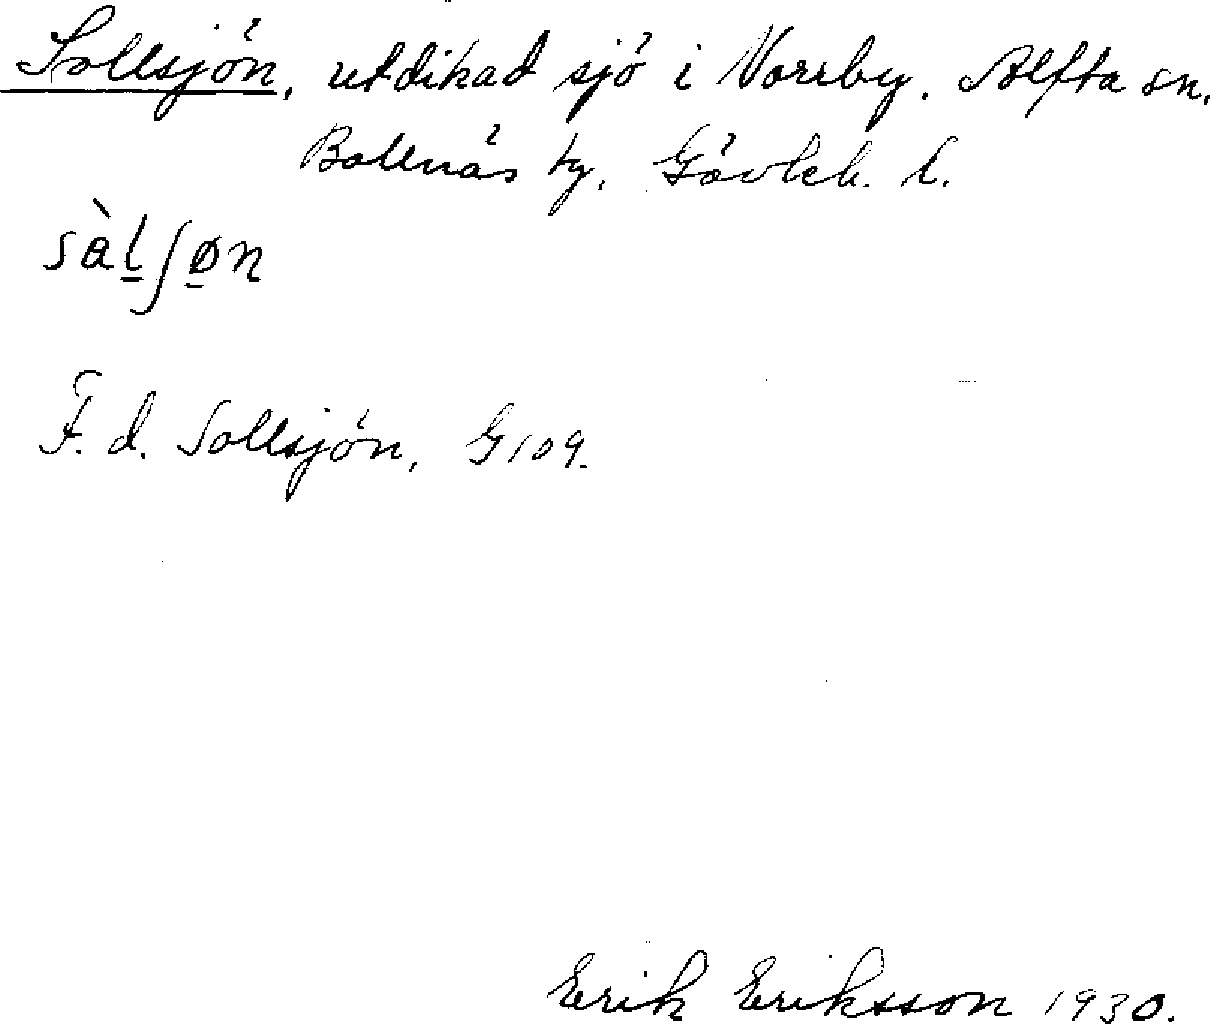 Sollsjön, utdikad sjö i Norrby. Alfta sn.
Bollnäs tg. Gävleb. l.
sàlʃøn
F. d. Sollsjön, G 109.
Erik Eriksson 1930.